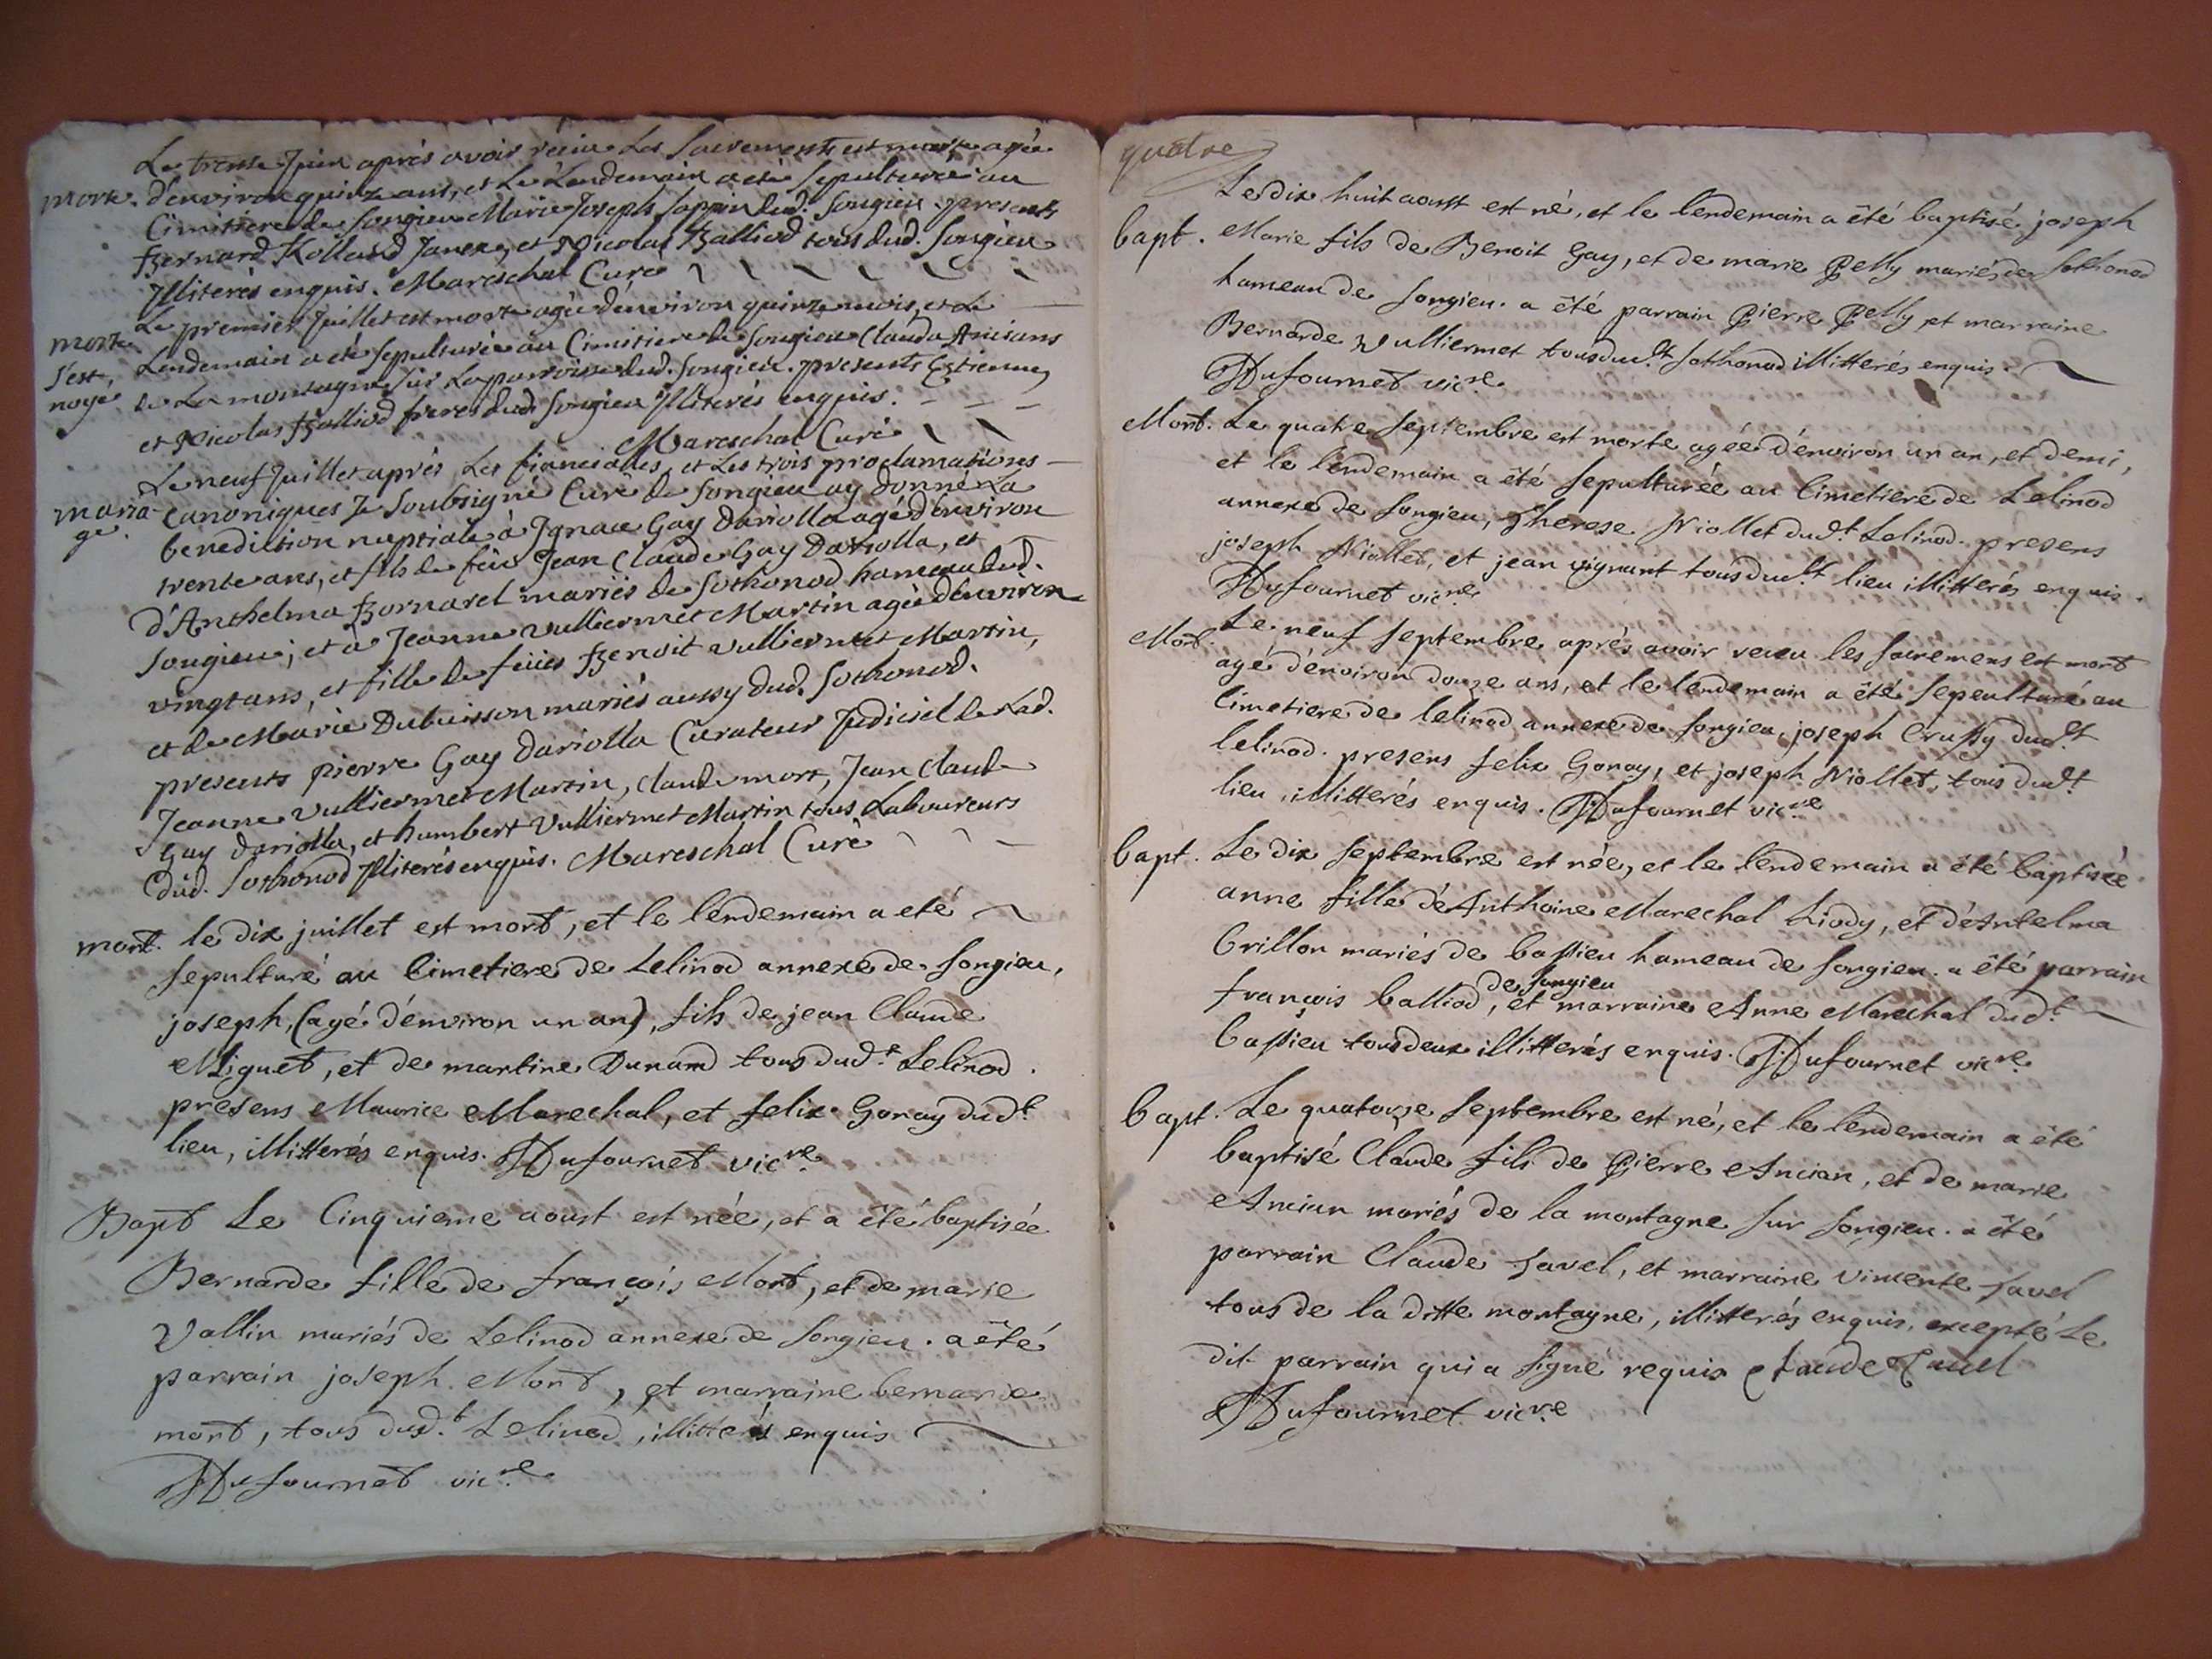 Le trente Juin aprés avoir reçeu Les Sacrements est morte agée
morte. d'environ quinze ans, et Le Lendemain a eté Sepulturée au
Cimittiere de Songieu Marie Joseph Sappin dud. Songieu. presents
Bernard Kolland Janex, et Nicolas Balliod tous dud. Songieu
Illiterés enquis. Mareschal Curé
Le premier Juillet est morte agée d'environ quinze mois, et Le
morte Lendemain a eté Sepulturée au Cimitiere de Songieu Clauda
s'est de La montagne sur La parroisse dud. Songieu. presents Estienne
noyé et Nicolas Balliod freres dud. Songieu Illiterés enquis.
Mareschal Curé
Le neuf Juillet aprés Les fiancialles, et Les trois proclamations
maria- Canoniques Je Soubsigné Curé de Songieu ay donné La
ge. benediction nuptiale à Ignace Gay Dariolla agé d'environ
trente ans, et fils de feu Jean Claude Gay Dariolla, et
d'Anthelma Bornarel mariés de Sothonod hameau dud.
Songieu; et à Jeanne Vulliermet Martin agée d'environ
vingt ans, et fille de feüs Benoit Vulliermet Martin,
et de Marie Dubuisson mariés aussy dud. Sothonod.
presents pierre Gay Dariolla Curateur Judiciel de Lad.
Jeanne Vulliermet Martin, Claude mort, Jean Claude
Gay Dariolla, et humbert Vulliermet Martin tous Laboureurs
dud. Sothonod Illiterés enquis. Mareschal Curé
mort. le dix juillet est mort, et le lendemain a eté
sepulturé au Cimetiere de Lelinod annexe de Songieu,
joseph, (agé d'environ un an), fils de jean Claude
Miguet, et de martine Dunand tous dud.t Lelinod.
presens Maurice Marechal, et felix Gonay dud.t
lieu, illitterés enquis. Dufournet vic.re
Bapt Le Cinquieme aoust est née, et a été baptisée
Bernarde fille de françois Mort, et de marie
Vallin mariés de Lelinod annexe de Songieu. a été
parrain joseph Mort, et marraine bernarde
mort, tous dud.t Lelinod, illitterés enquis
Dufournet vic.re
quatre
Le dix huit aoust est né, et le lendemain a été baptisé joseph
bapt. Marie fils de Benoit Gay, et de marie Pelly mariés de Sothonod
hameau de Songieu. a été parrain Pierre Pelly et marraine
Bernarde Vulliermet tous dud.t Sothonod illitterés enquis.
Dufournet vic.re
Mort. Le quatre Septembre est morte agée d'environ un an, et demi,
et le lendemain a été Sepulturée au Cimetiere de Lelinod
annexe de Songieu, Therese Niollet dud.t Lelinod. presens
joseph Niollet, et jean vignant tous dud.t lieu illitterés enquis.
Dufournet vic.re
Mort. Le neuf Septembre aprés avoir receu les sacremens est mort
agé d'environ douze ans, et le lendemain a été Sepulturé au
Cimetiere de lelinod annexe de Songieu, joseph Crussy dud.t
lelinod. presens felix Gonay, et joseph Niollet, tous dud.t
lieu, illitterés enquis. Dufournet vic.re
bapt. Le dix Septembre est née, et le lendemain a été baptisée
anne fille d'Anthoine Marechal Liody, et d'Antelma
brillon mariés de bassieu hameau de Songieu. a été parrain
de Songieu
françois balliod, et marraine Anne Marechal dud.t
bassieu tous deux illitterés enquis. Dufournet vic.re
bapt. Le quatorze Septembre est né, et le lendemain a été
baptisé Claude fils de Pierre Ancian, et de marie
Ancian mariés de la montagne sur Songieu. a été
parrain Claude Favel, et marraine vincente favel
tous de la ditte montagne, illitterés enquis, excepté le
dit parrain qui a signé requis Claude Favel
Dufournet vic.re